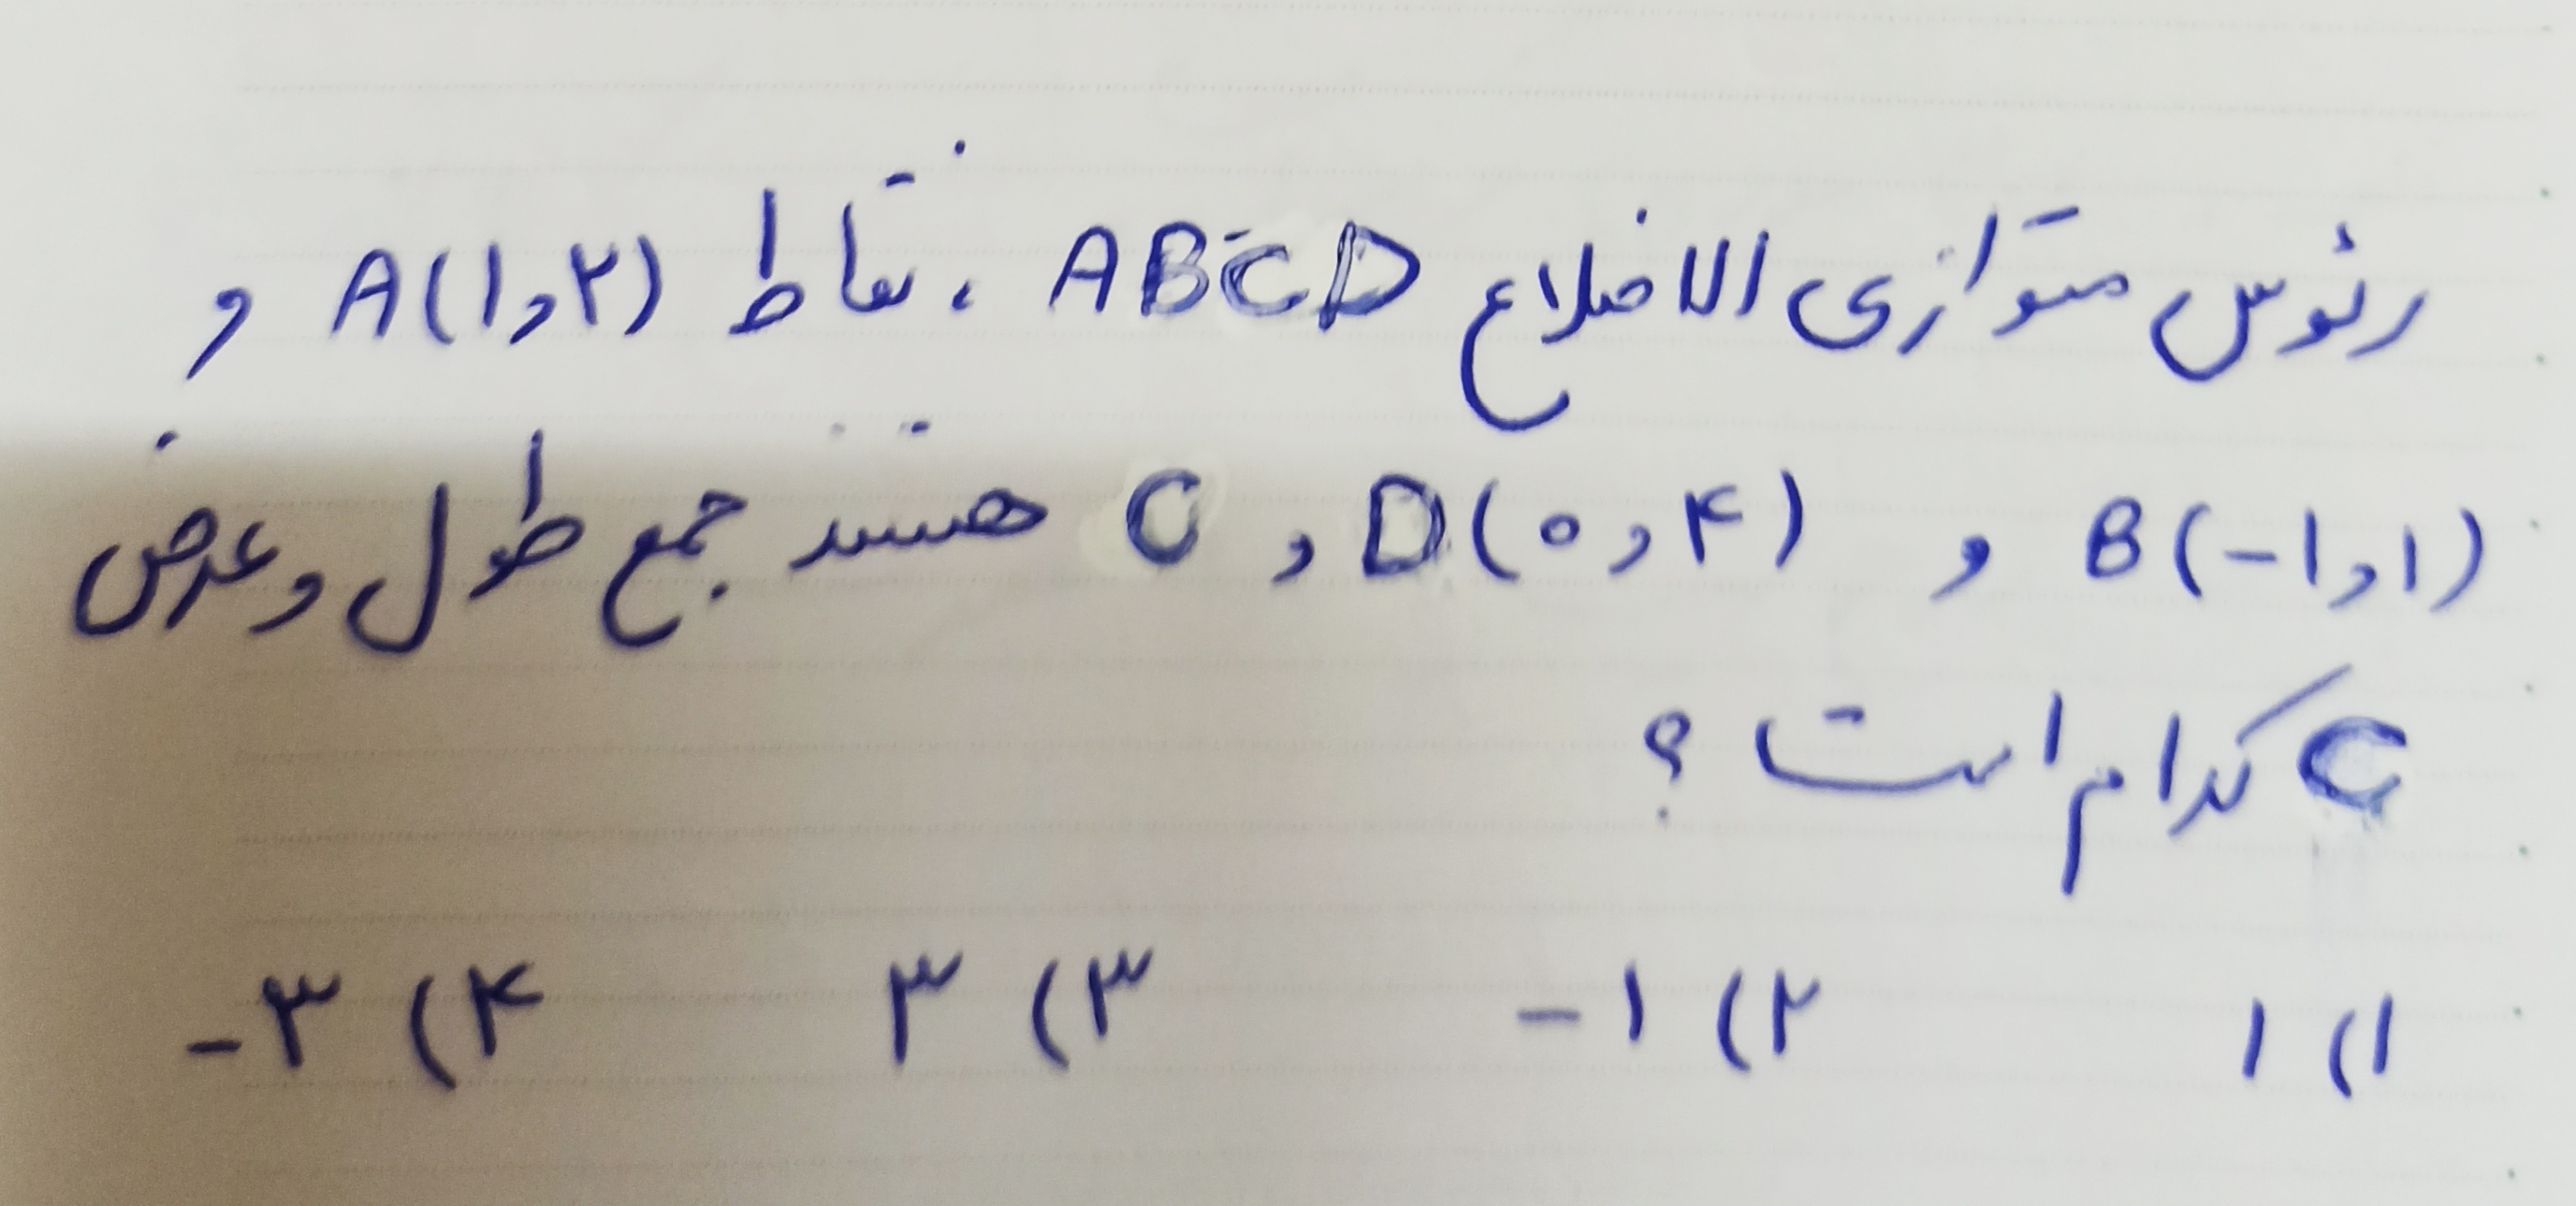 رئوس متوازی الاضلاع ABCD ، نقاط A(۱,۲) و
B(-۱,۱) و D(۰,۴) و C هستند جمع طول و عرض
C کدام است ؟
۱) ۱ ۲) -۱ ۳) ۳ ۴) -۳